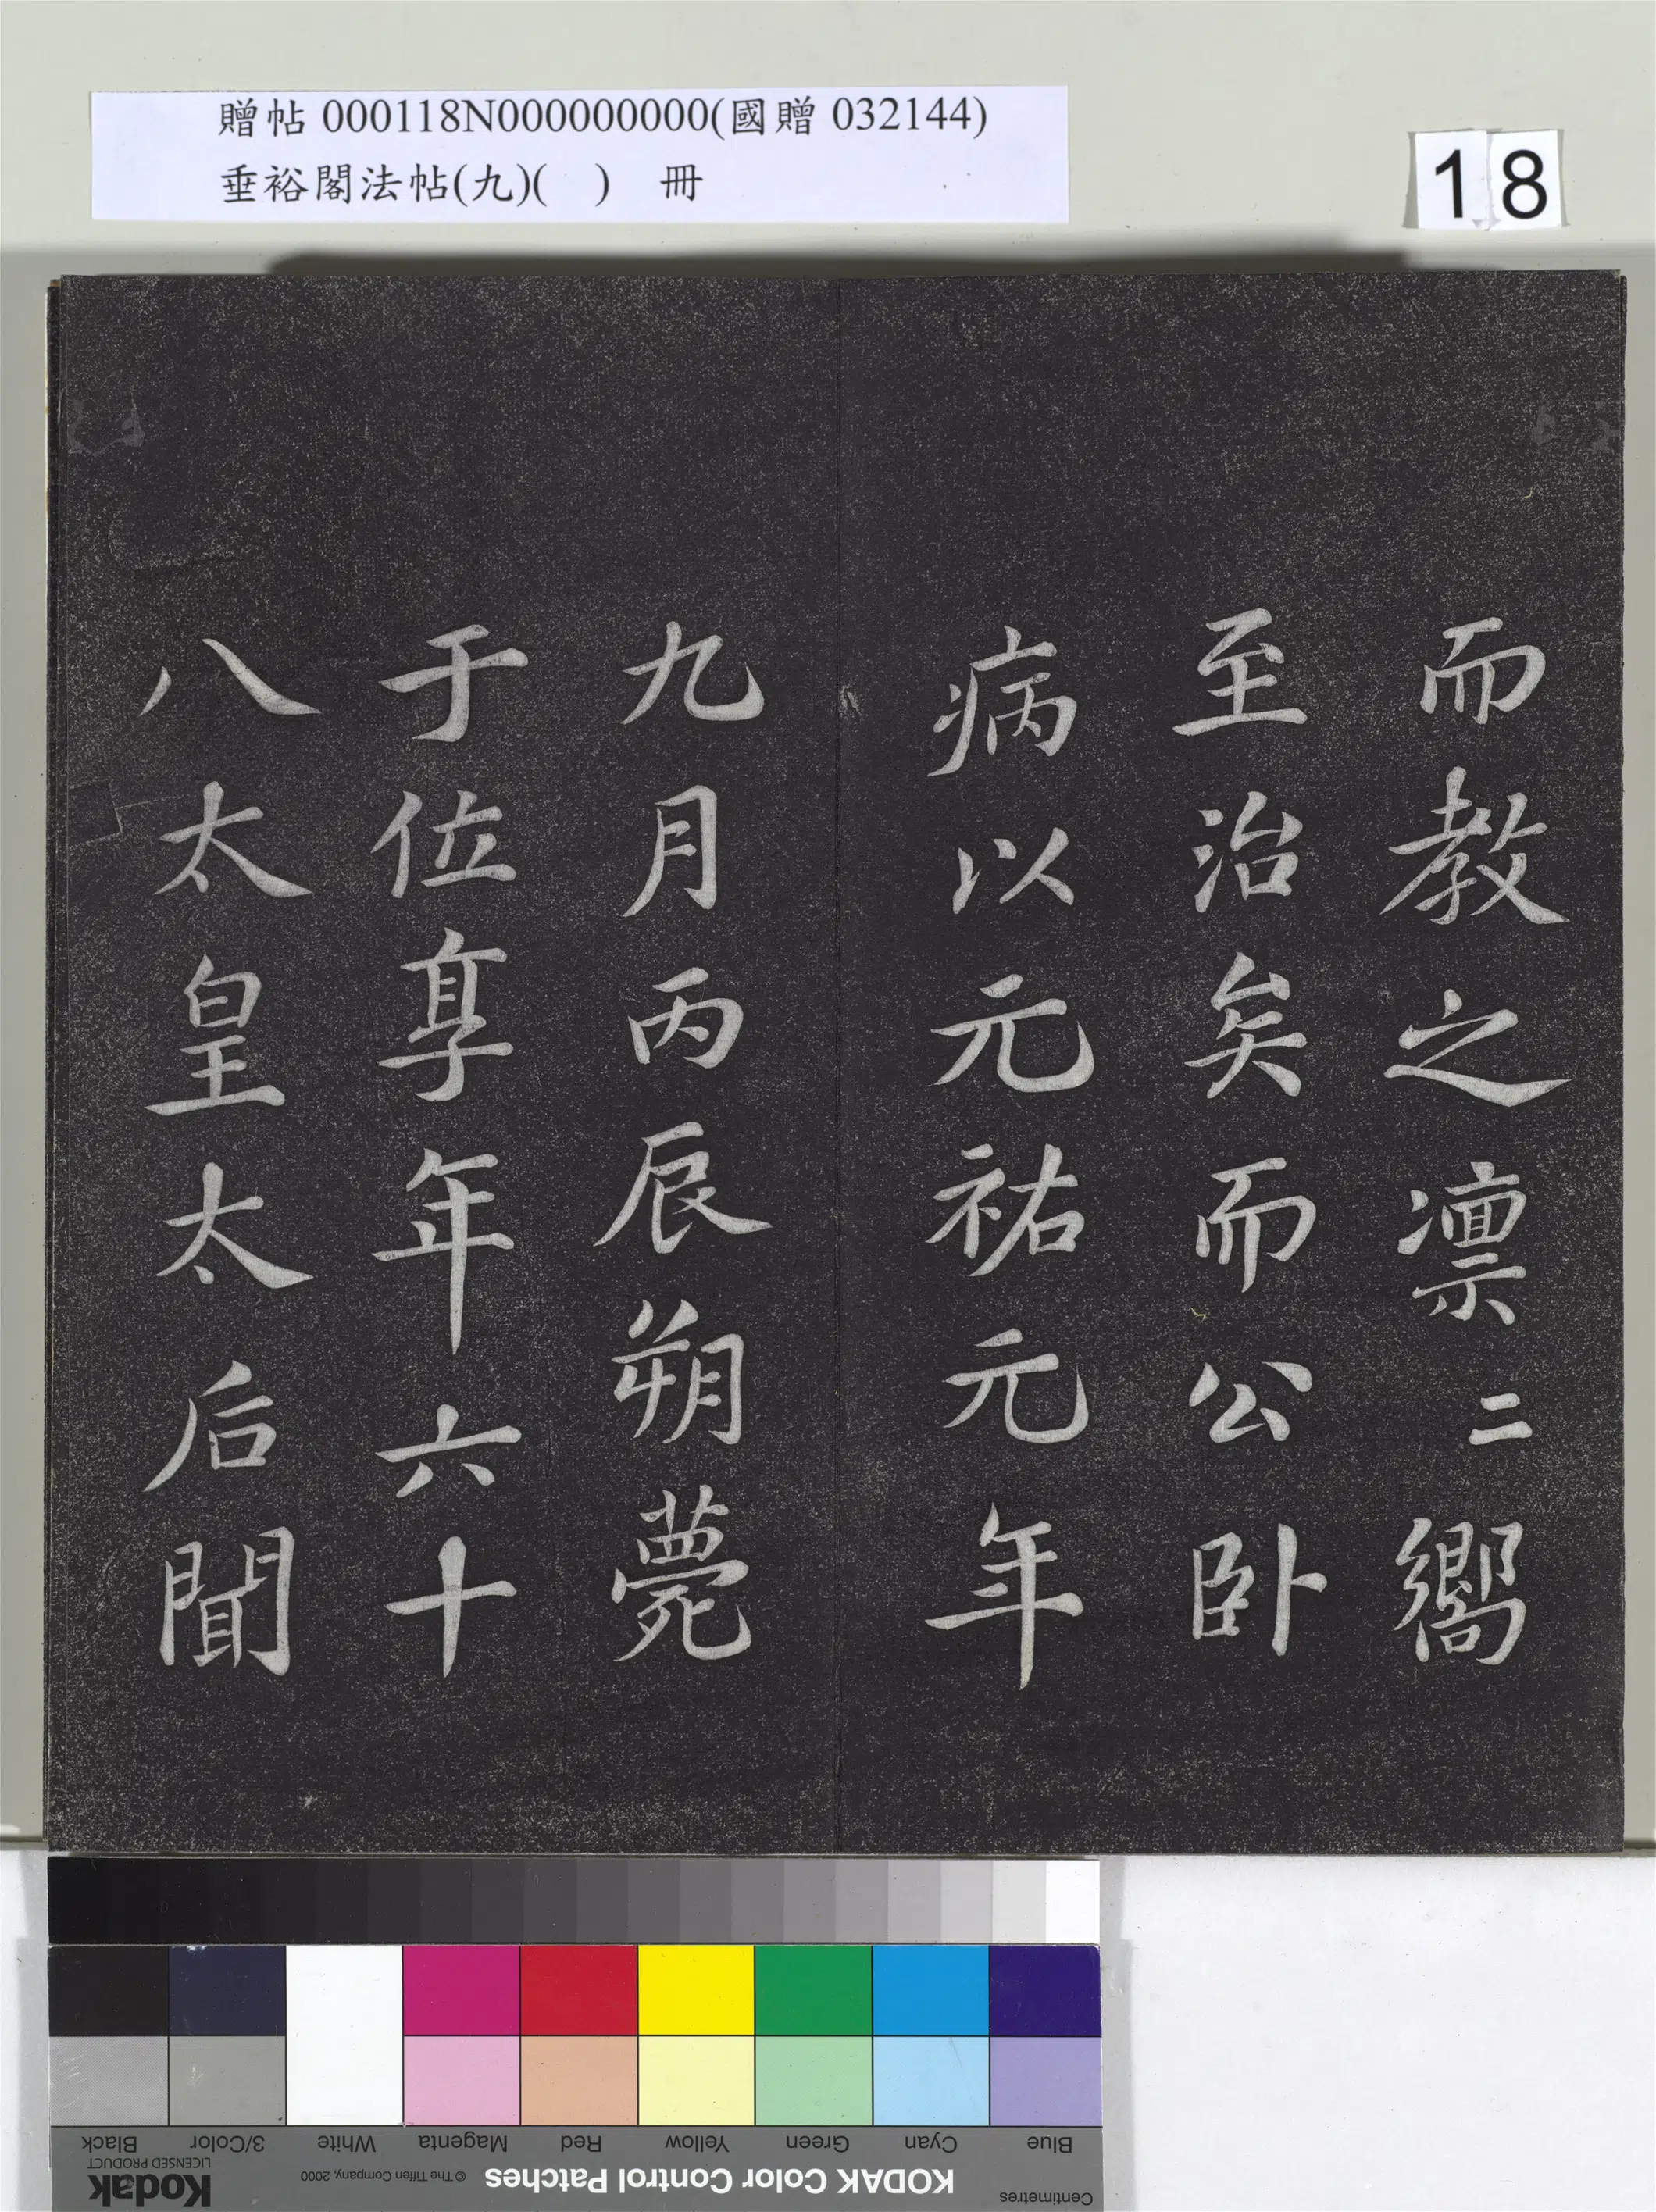 贈帖 000118N000000000(國贈 032144)
垂裕閣法帖(九)(　)　冊
18
而教之凛〻嚮
至治矣而公卧
病以元祐元年
九月丙辰朔薨
于位享年六十
八太皇太后聞
Blue Cyan Green Yellow Red Magenta White 3/Color Black
Centimetres KODAK Color Control Patches © The Tiffen Company, 2000 Kodak
LICENSED PRODUCT